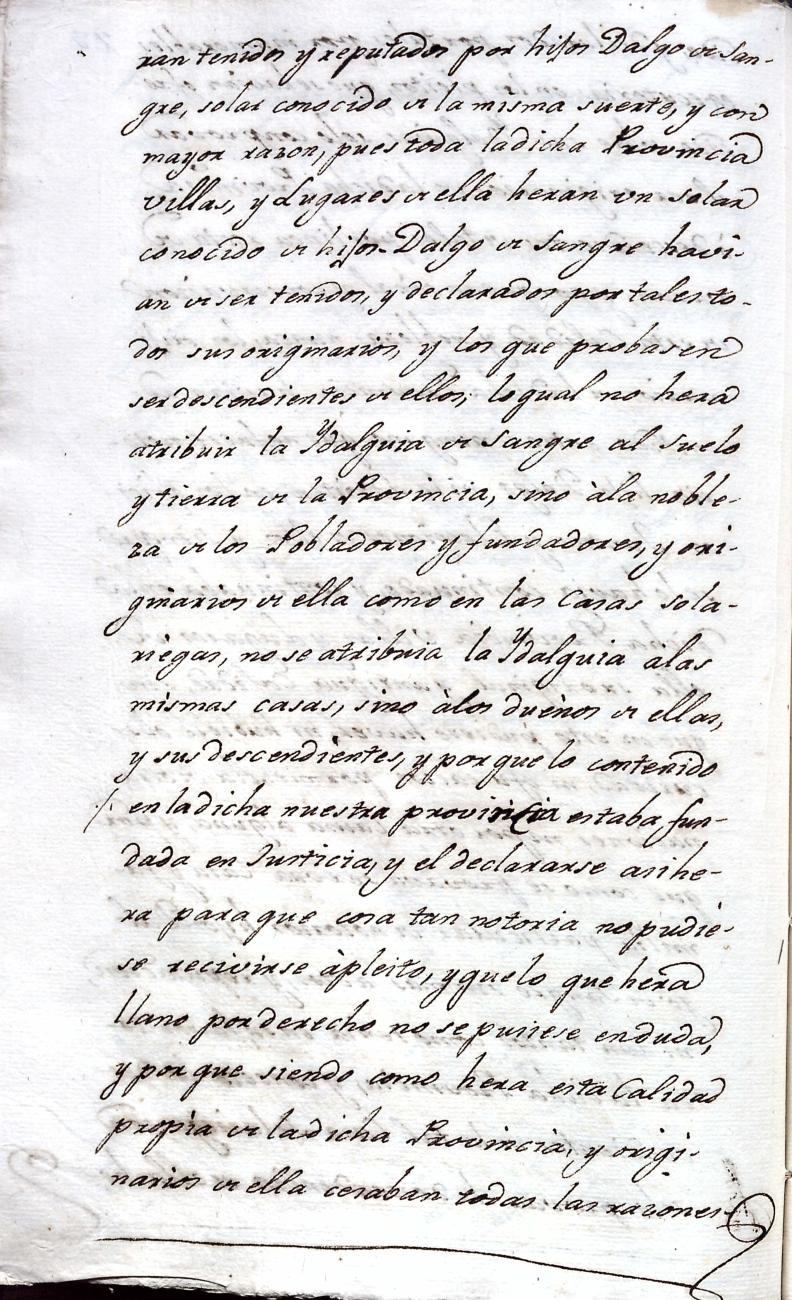 ran tenidos y reputados por hijos Dalgo de San-
gre, solar conocido de la misma suerte, y con
mayor razon, pues toda la dicha Provincia
villas, y Lugares de ella heran un solar
conocido de hijos-Dalgo de Sangre havi-
an de ser tenidos, y declarados por tales to-
dos sus originarios, y los que probasen
ser descendientes de ellos, lo qual no hera
atribuir la Ydalguia de Sangre al suelo
y tierra de la Provincia, sino àla noble-
za de los Pobladores y fundadores, y ori-
ginarios de ella como en las Casas sola-
riegas, no se atribuia la Ydalguia àlas
mismas casas, sino àlos dueños de ellas,
y sus descendientes, y por que lo contenido
/. en la dicha nuestra provincia estaba fun-
dada en Justicia, y el declararse asi he-
ra para que cosa tan notoria no pudie-
se recivirse àpleito, y que lo que hera
llano por derecho no se pusiese en duda,
y por que siendo como hera esta Calidad
propia de la dicha Provincia, y origi-
narios de ella cesaban todas las razones